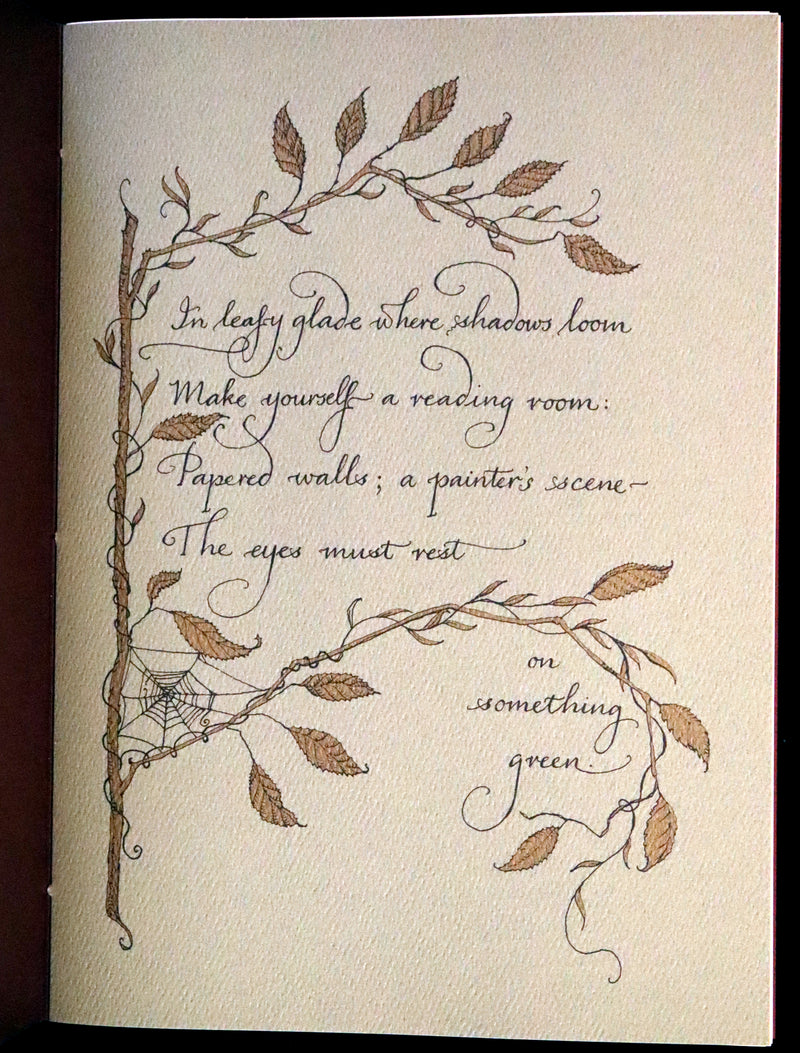 In leafy glade where shadows loom
Make yourself a reading room:
Papered walls; a painter's scene-
The eyes must rest
on
something
green.